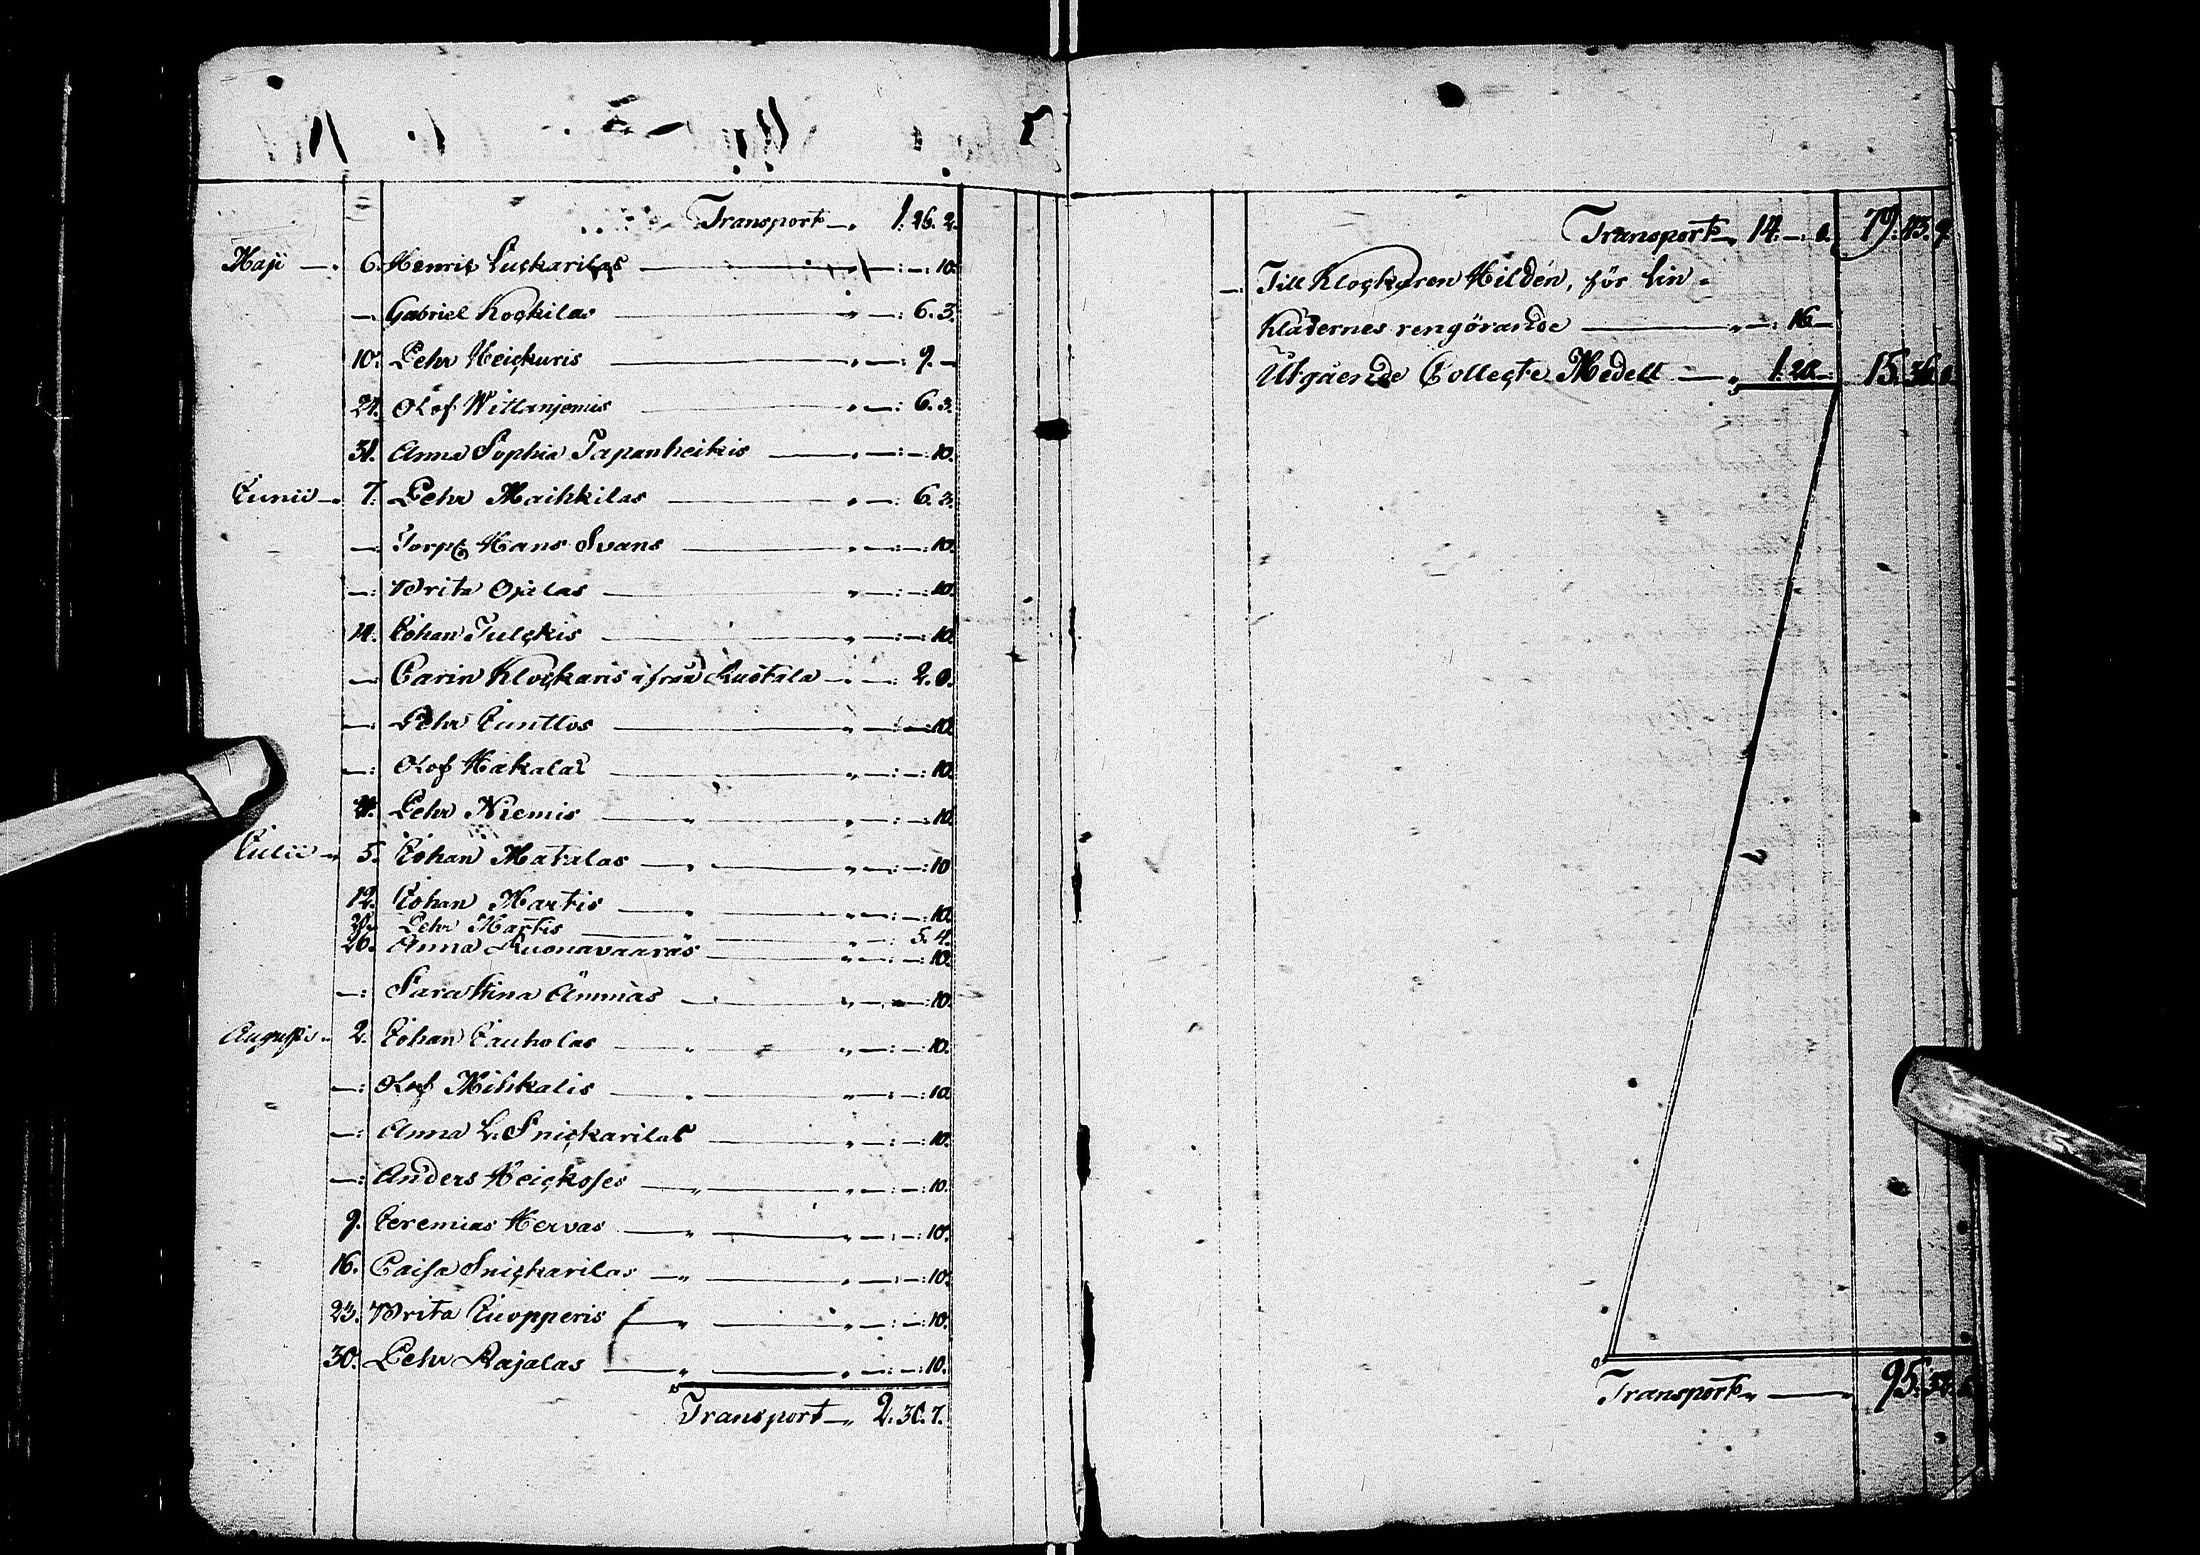 Transport 1. 26. 2.
Maji 6. Henric Luckarilas — 10.
— Gabriel Kockilas — 6. 3.
10. Pehr Heickuris — 9. —
24. Olof Wittanjemis — 6. 3.
31. Anna Sophia Tapanheikis — 10.
Junii 7. Pehr Maihkilas — 6. 3.
— Torp. Hans Svans — 10.
— Brita Ojalas — 10.
14. Johan Tulckis — 10.
— Carin Klockaris ifrån Kustala — 2. 8.
— Pehr Junttos — 10.
— Olof Hakalas — 10.
21. Pehr Niemis — 10.
Julii 5. Johan Matalas — 10
12. Johan Martis — 10.
Pehr Martis — 5. 4.
26. Anna Kuonavaaras — 10.
— Sara Stina Ämmäs — 10.
Augusti 2. Johan Jauholas — 10.
— Olof Mihkalis — 10.
— Anna L. Snickarilas — 10.
— Anders Heickoses — 10.
9. Jeremias Hervas — 10.
16. Caisa Snickarilas — 10.
23. Brita Juopperis — 10.
30. Pehr Rajalas — 10.
Transport 2. 30. 7.
Transport 14. — 8. 79. 43. 9.
— Till Klockaren Hildén, för Lin-
klädernes rengörande — 16 —
Utgående Collecte Medell — 1. 20. — 15. 36. 8.
Transport — 95.